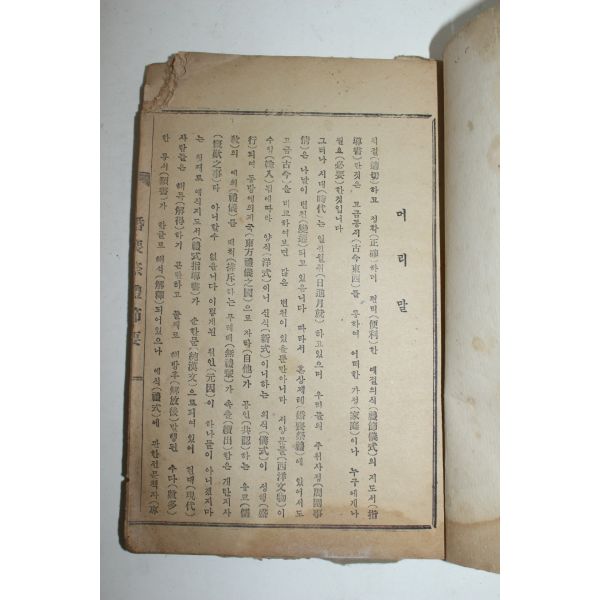 머리말
적절(適切)하고 정확(正確)하며 편벽(便利)한 예절의식(禮節儀式)의 지도서(指
導書)란것은 고금동서(古今東西)를 통하여 어떠한 가정(家庭)이나 누구에게나
필요(必要)한것입니다
그러나 시대(時代)는 일취월취(日進月就)하고있으며 우리들의 주위사정(周圍事
情)은 나날이 변천(變遷)되고 있읍니다 따라서 혼상제례(婚喪祭禮)에 있어서도
고금(古今)을 비교하여보면 많은 변천이 있을뿐만아니라 서양문물(西洋文物)이
수입(輸入)됨에따라 양식(洋式)이니 신식(新式)이니하는 의식(儀式)이 성행(盛
行)되여 동방예의지국(東方禮儀之國)으로 자타(自他)가 공인(共認)하는
의 예의(禮儀)를 배척(排斥)하는 무례배(無禮輩)가 속출(續出)함은 개탄지사
(慨歎之事)라 아니할수 없읍니다 이렇게된 원인(元因)이 하나둘이 아니겠지마
는 첫째로 예식지도서(禮式指導書)가 순한문(純漢文)으로되여 있어 현대(現代)
사람들은 해득(解得)하기 곤난하고 둘째로 해방후(解放後)발행된 수다(數多)
한 유서(類書)가 한글로 해석(解釋)되어있으나 예식(禮式)에 관한전문책자(專
婚喪祭禮節要